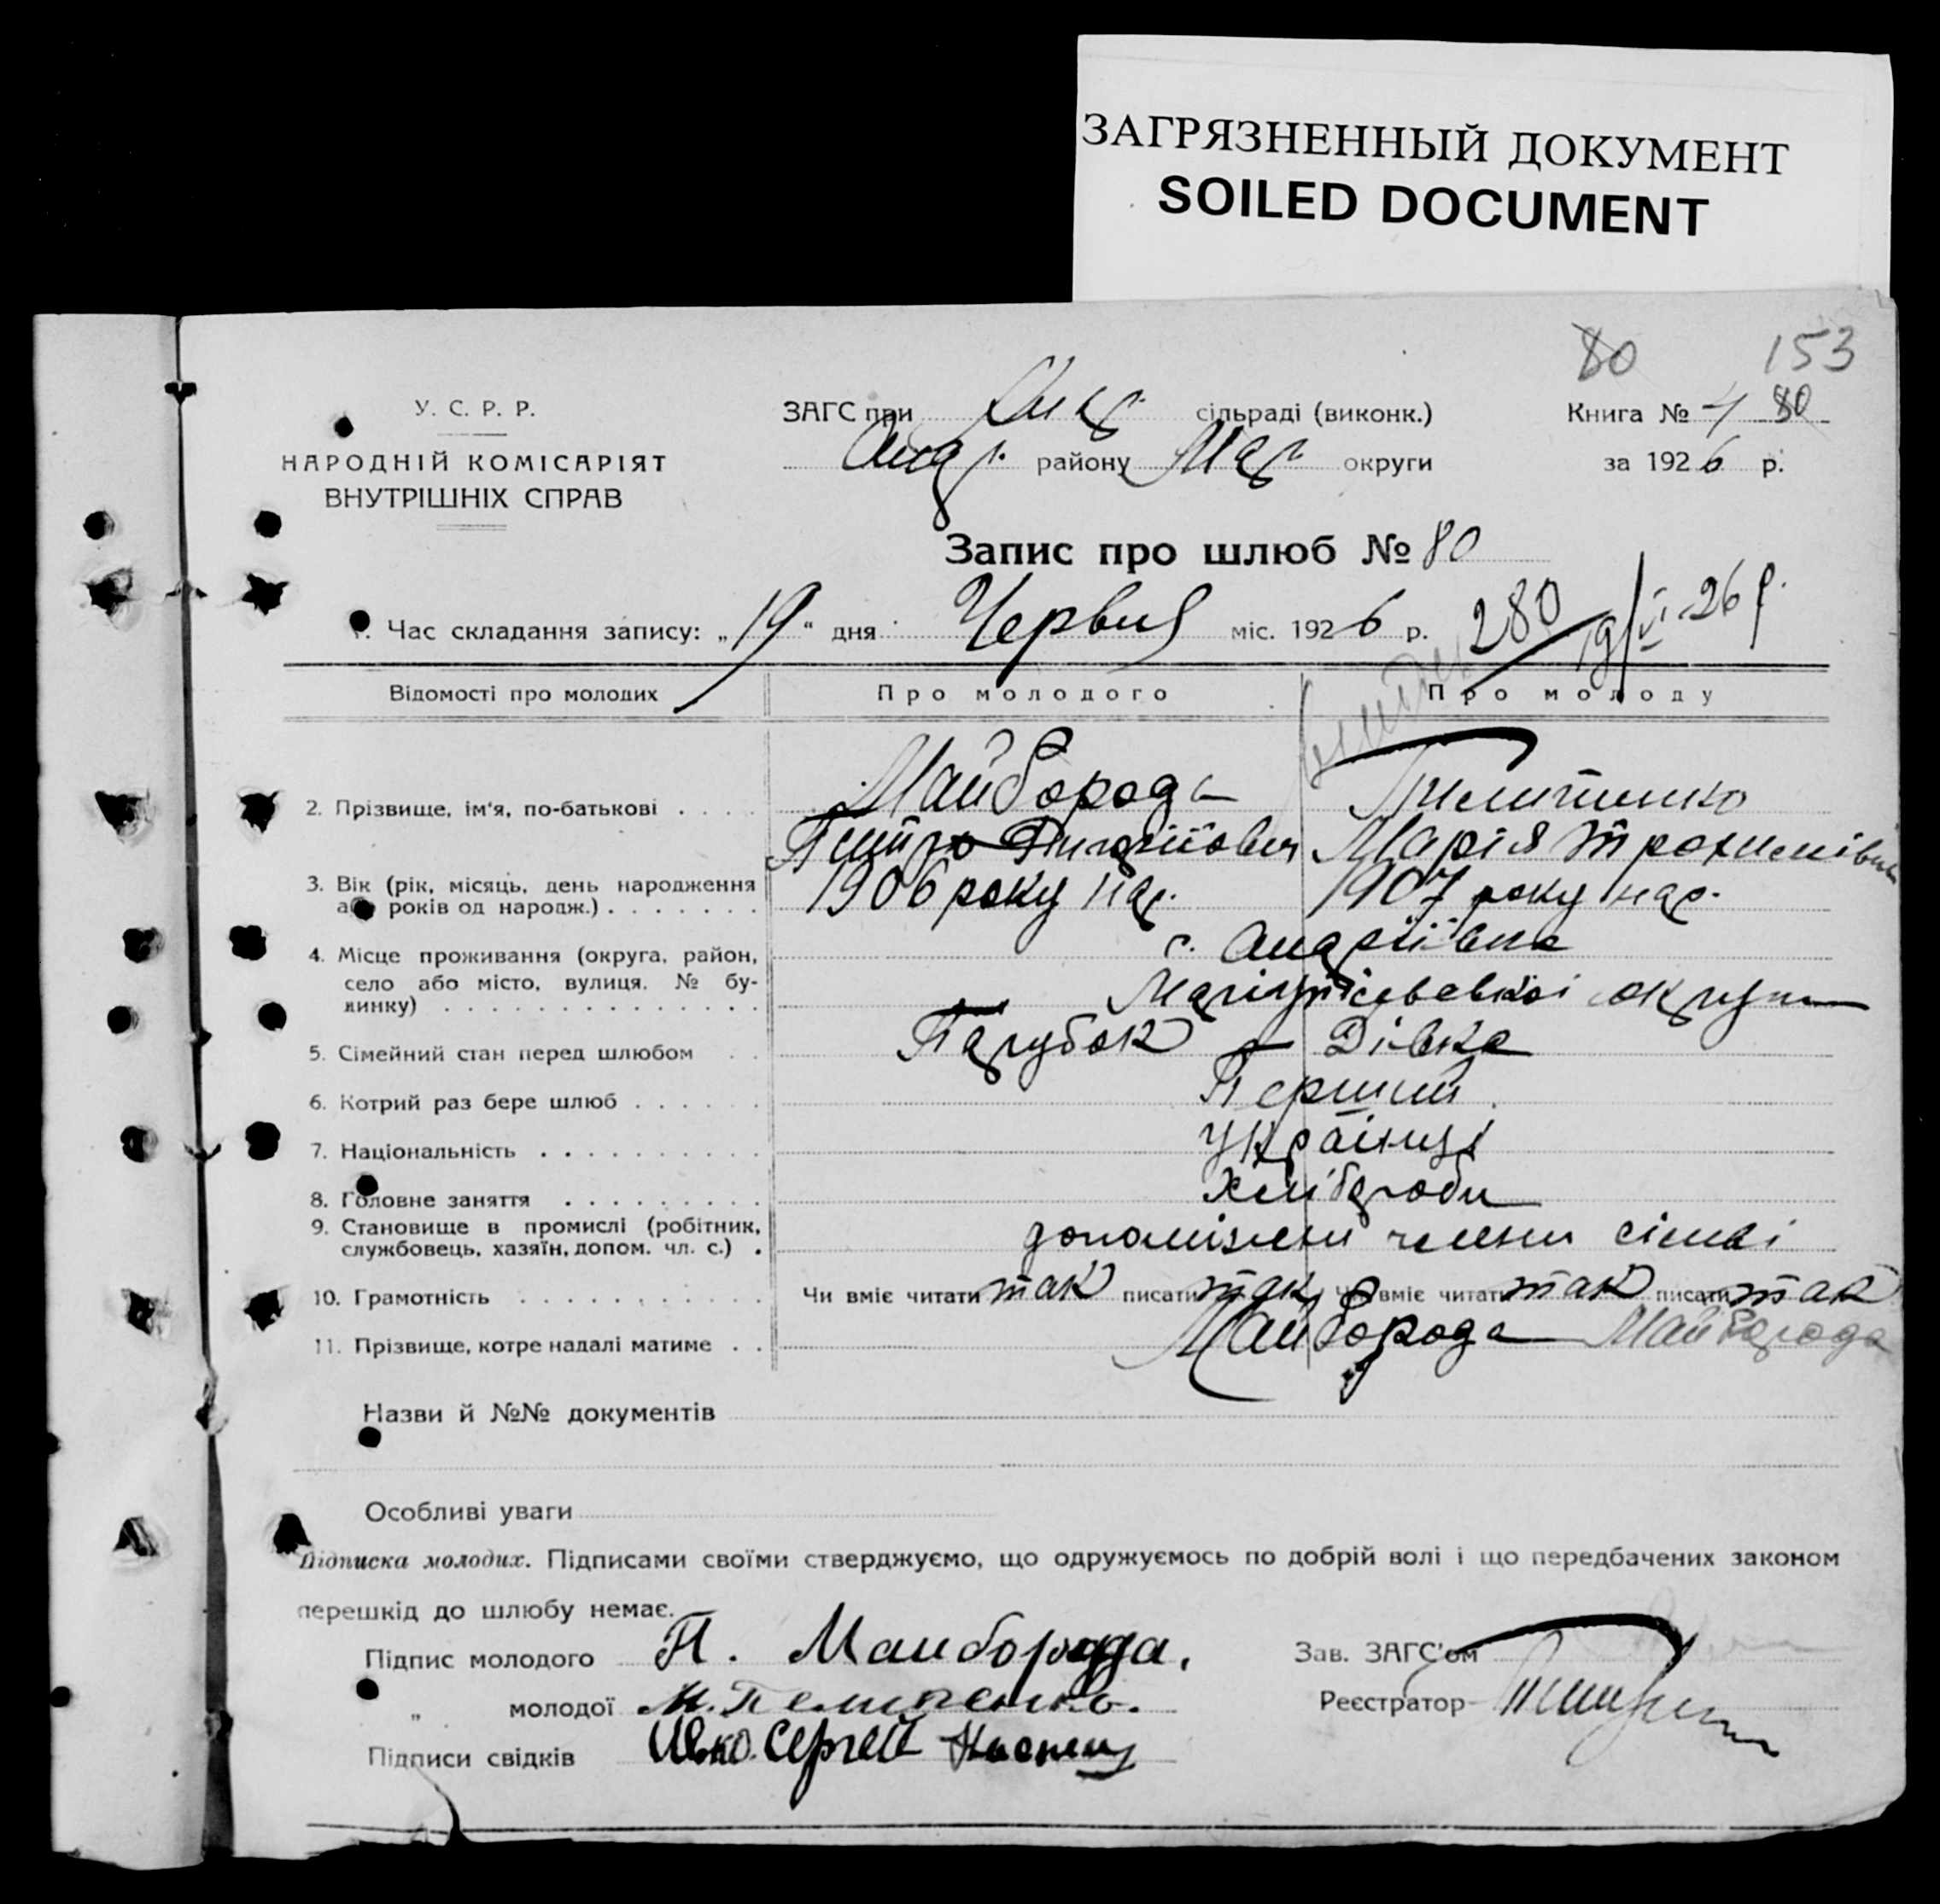 ЗАГРЯЗНЕННЫЙ ДОКУМЕНТ
SOILED DOCUMENT
80 153
У. С. Р. Р.
НАРОДНІЙ КОМІСАРІЯТ
ВНУТРІШНІХ СПРАВ
ЗАГС при сільраді (виконк.)
Андр. району Мар. округи
Книга № 4 80
за 1926 р.
Запис про шлюб № 80
1. Час складання запису: „19“ дня Червня міс. 1926 р. 280 19/VI-26 р.
Відомості про молодих Про молодого Про молоду
2. Прізвище, ім'я, по-батькові . . . . Майборода
Петро Марія Трохимівна
3. Вік (рік, місяць, день народження або років од народж.) . . . . . . . 1906 року нар. 1907 року нар.
4. Місце проживання (округа, район, село або місто, вулиця. № будинку) . . . . . . . . . . . . . . с. Андріївка
Маріупільської округи
5. Сімейний стан перед шлюбом . . Парубок – Дівка
6. Котрий раз бере шлюб . . . . . . Перший
7. Національність . . . . . . . . . . Українці
8. Головне заняття . . . . . . . . . Хлібороби
9. Становище в промислі (робітник, службовець, хазяїн, допом. чл. с.) . допоміжни члени сімьі
10. Грамотність . . . . . . . . . . . Чи вміє читати так писати так Чи вміє читати так писати так
11. Прізвище, котре надалі матиме . . Майборода Майборода
Назви й №№ документів
Особливі уваги
Підписка молодих. Підписами своїми стверджуємо, що одружуємось по добрій волі і що передбачених законом
перешкід до шлюбу немає.
Підпис молодого П. Майборода.
Зав. ЗАГС'ом
„ молодої М.
Реєстратор
Підписи свідків Сергей